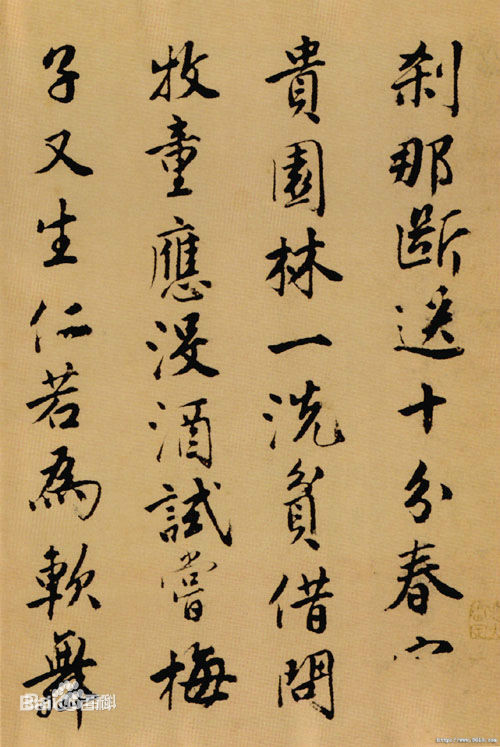 刹那斷送十分春
貴園林一洗貧借問
牧童應沒酒試嘗梅
子又生仁若為軟舞
Bai百科